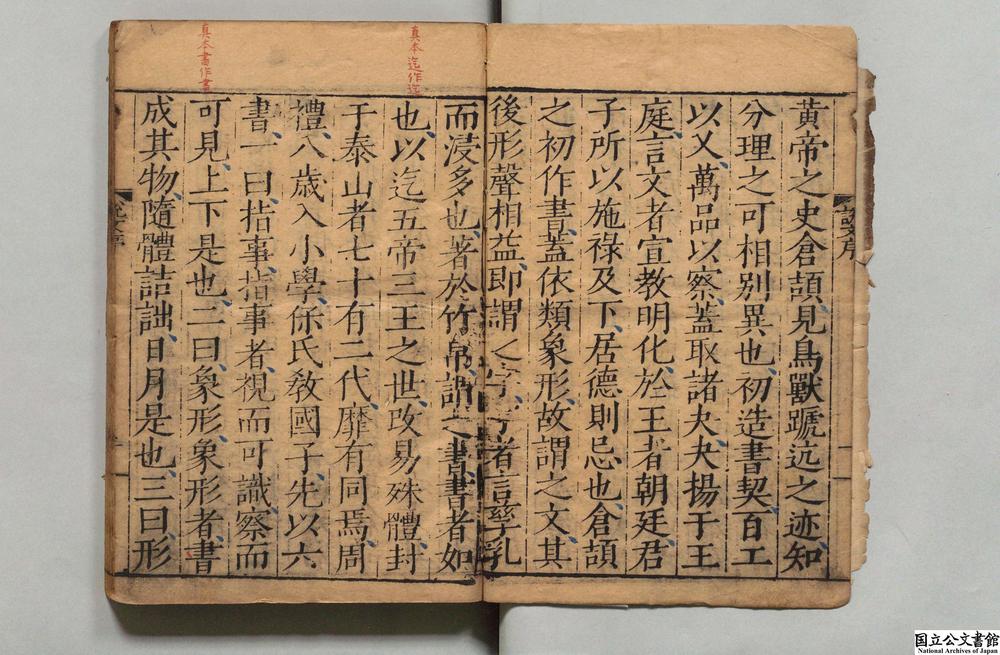 黄帝之史倉頡見鳥獸蹏迒之迹知
分理之可相別異也初造書契百工
以乂萬品以察蓋取諸夬夬揚于王
庭言文者宣教明化於王者朝廷君
子所以施祿及下居德則忌也倉頡
之初作書蓋依類象形故謂之文其
後形聲相益即謂之字字者言孳乳
真本迄作
而浸多也著於竹帛謂之書書者如
也以迄五帝三王之世改易殊體封
于泰山者七十有二代靡有同焉周
禮八歲入小學保氏敎國子先以六
書一曰指事指事者視而可識察而
真本書作畫
可見上下是也二曰象形象形者書
成其物隨體詰詘日月是也三曰形
国立公文書館
National Archives of Japan